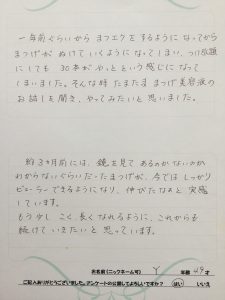 一年前ぐらいから まつエクを するように なってから
まつげが ぬけて いくように なってしまい、つけ放題
にしても 30本が やっとという 感じに なって
しまいました。そんな時 たまたま まつげ美容液の
お話しを聞き、やってみたいと 思いました。
約3ヵ月前には、鏡を見て あるのか ないのか
わからないぐらい だった まつげが、今では しっかり
ビューラー できるようになり、伸びたなぁと 実感
しています。
もう少し こく、長くなれるように、これからも
続けて いきたいと 思っています。
お名前(ニックネーム可) Y 年齢 49才
ご記入ありがとうございました。アンケートの公開してよろしいですか? はい いいえ